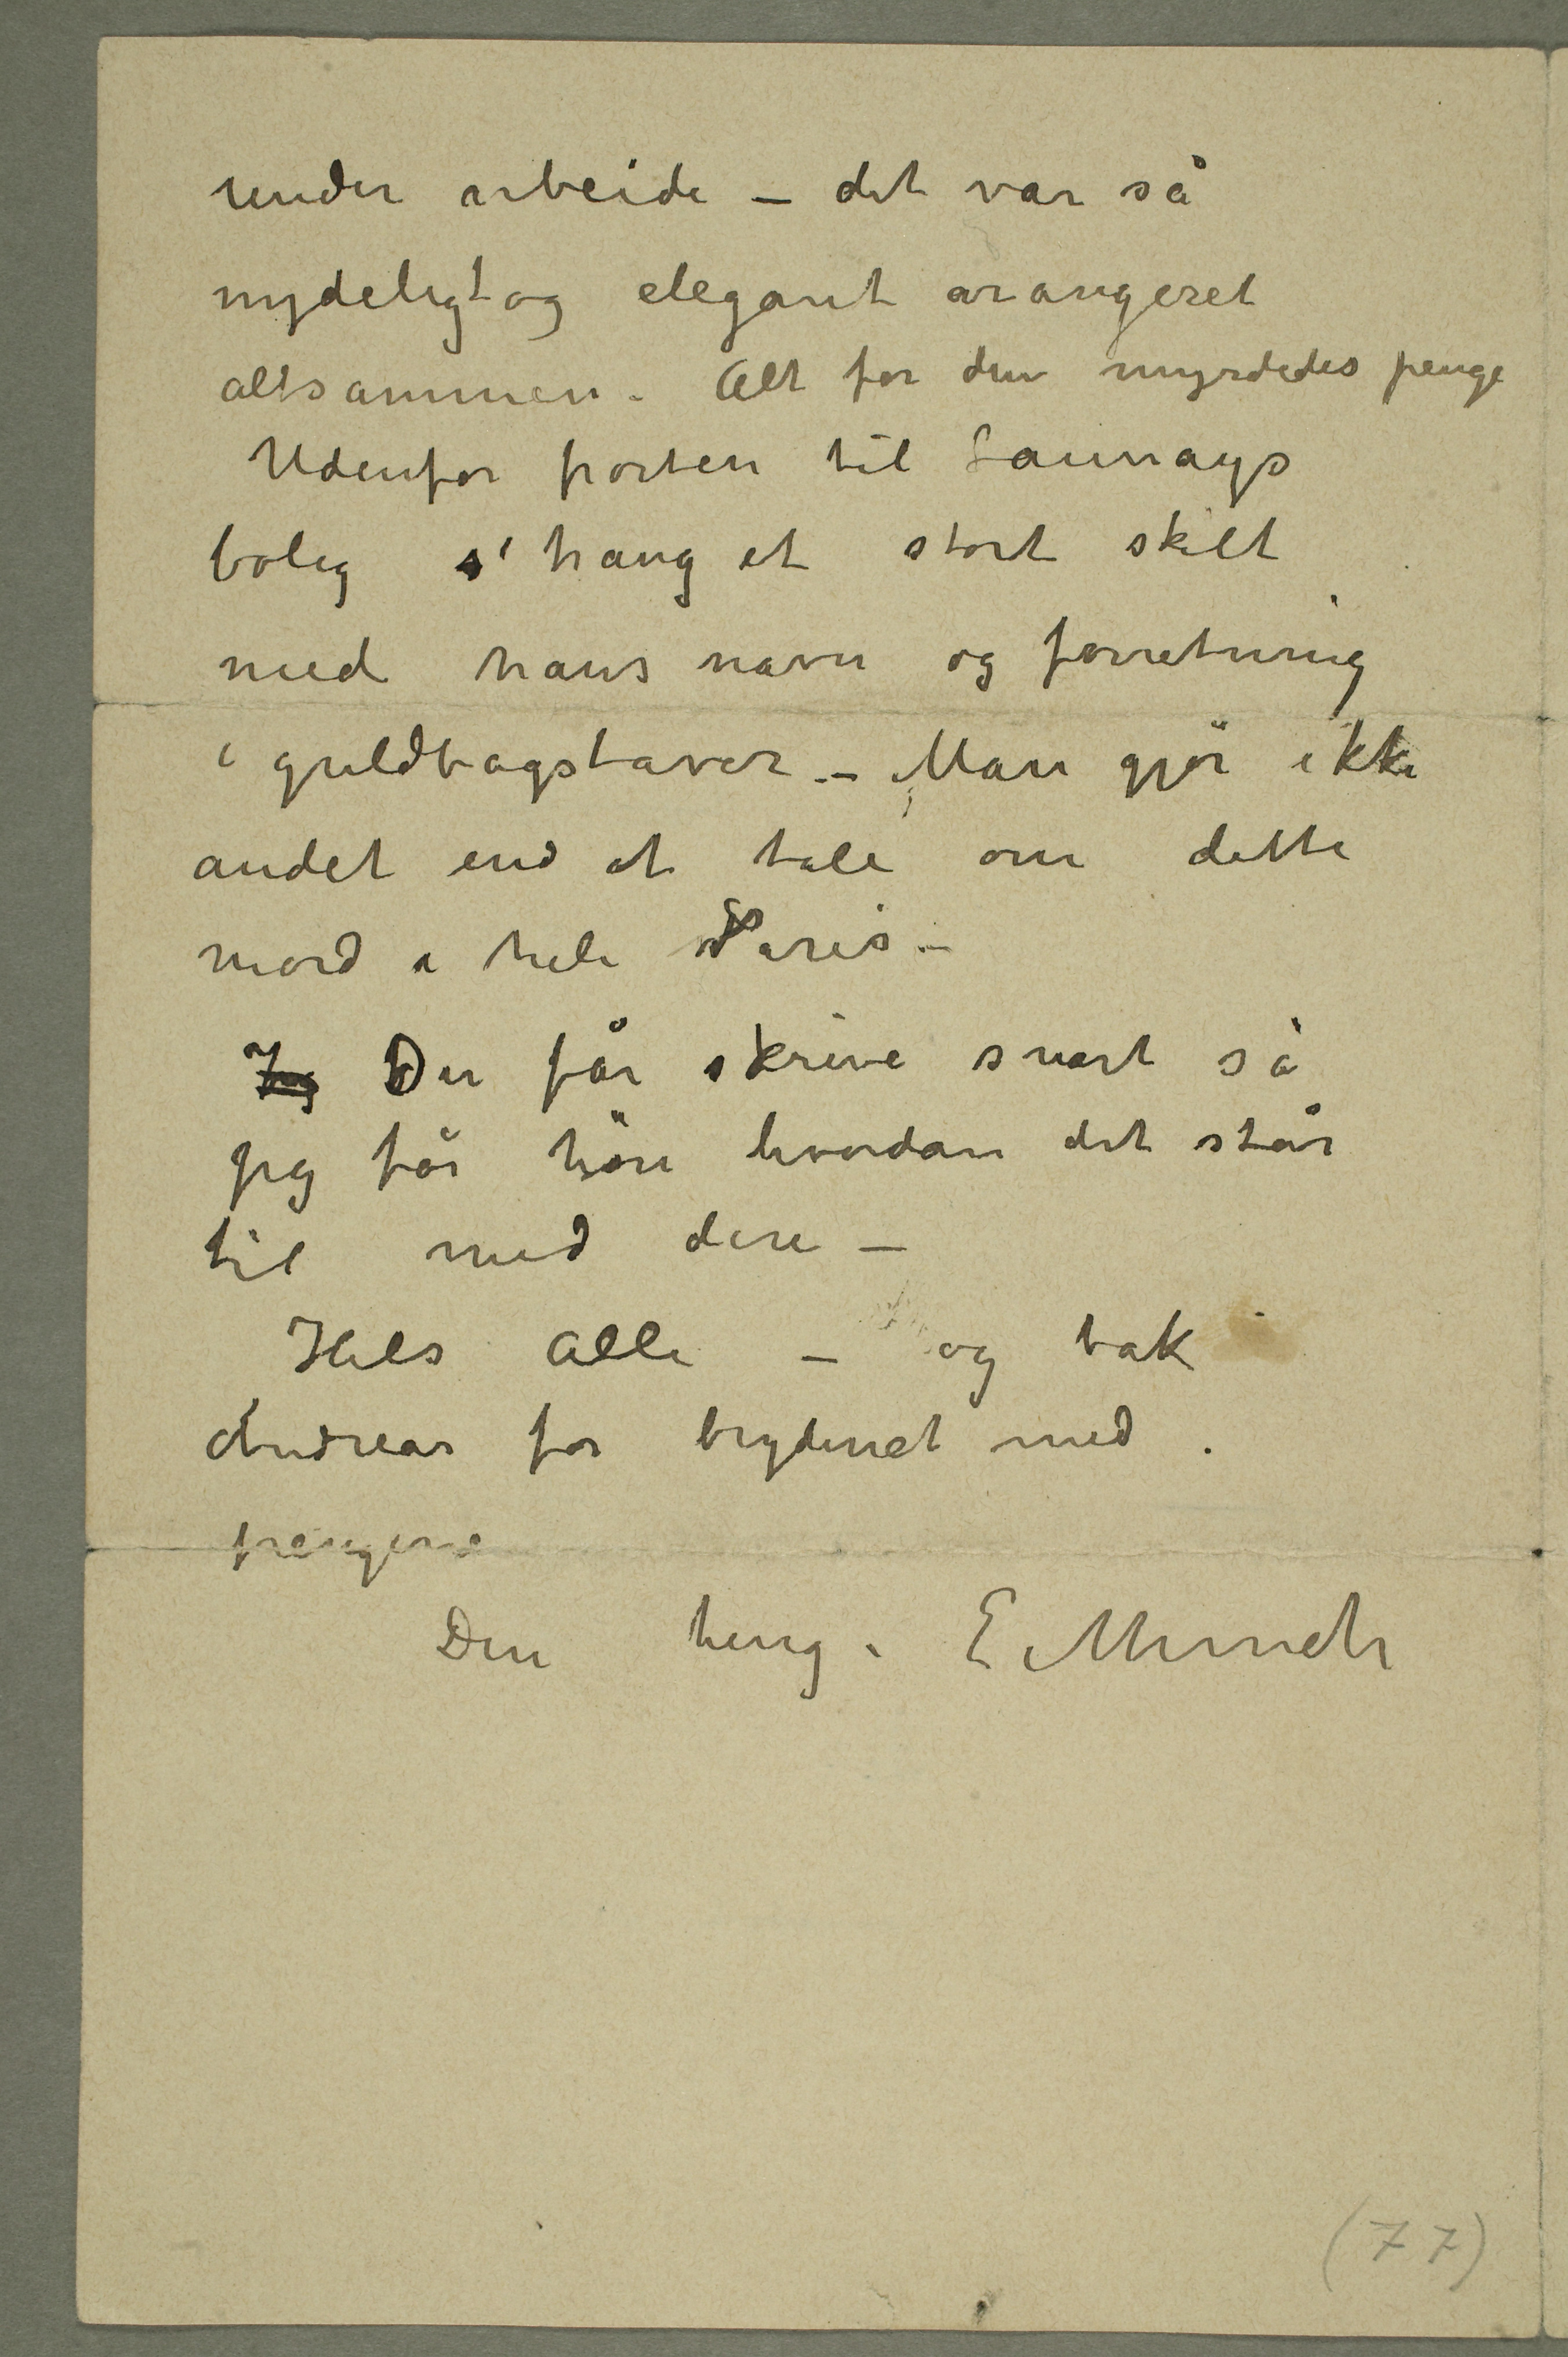 under arbeide – det var så
nydeligt og elegant arangeret
altsammen. Alt for den myrdedes penge
Udenfor porten til Launays
bolig hang et stort skilt
med hans navn og forretning
i guldbogstaver. – Man gjör ikke
andet end at tale om dette
mord i hele Paris. –
Jeg Du får skrive snart så
jeg får höre hvordan det står
til med dere –
Hils alle – og tak
Andreas for bryderiet med
pengene
Din heng. E Munch
(77)